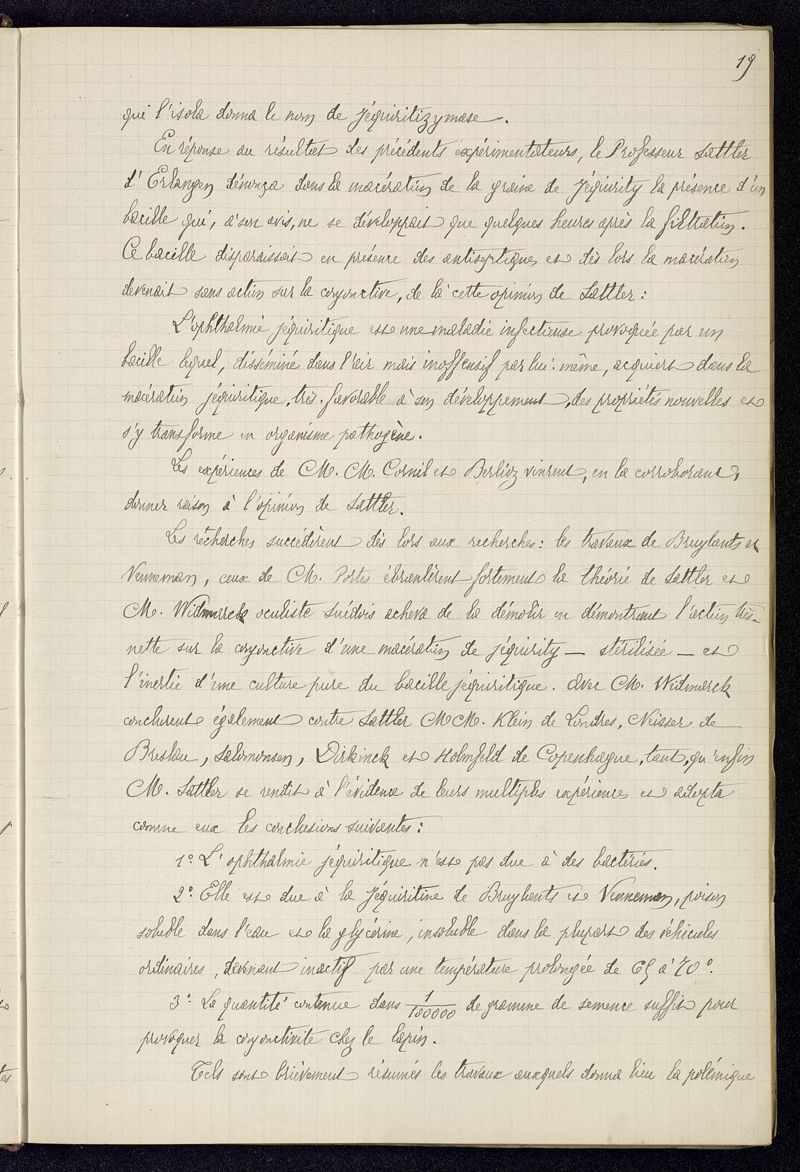 19
qui l'isola donna le nom de Jéquiritizymase.
En réponse au résultat des précédents expérimentateurs, le Professeur Sattler
d'Erlangen dénonça dans la macération de la graine de Jéquirity la présence d'un
bacille qui, à son avis, ne se développait que quelques heures après la filtration.
Ce bacille disparaissait en présence des antiseptiques et dès lors la macération
devenait sans action sur la conjonctive, de là cette opinion de Sattler :
L'ophthalmie jéquiritique est une maladie infectieuse provoquée par un
bacille lequel, disséminé dans l'air mais inoffensif par lui-même, acquiert dans la
macération jéquiritique, très-favorable à son développement, des propriétés nouvelles et
s'y transforme en organisme pathogène.
Les expériences de M. M. Cornil et Berlioz vinrent, en la corroborant,
donner raison à l'opinion de Sattler.
Les recherches succédèrent dès lors aux recherches : les travaux de Bruylants et
Venneman, ceux de M. Portes ébranlèrent fortement la théorie de Sattler et
M. Widmarck oculiste suédois acheva de la démolir en démontrant l'action très-
nette sur la conjonctive d'une macération de jéquirity — stérilisée — et
l'inertie d'une culture pure du bacille jéquiritique. Avec M. Widmarck
conclurent également contre Sattler MM. Klein de Londres, Neisser de
Breslau, Salomonsen, Dirkinck et Holmfeld de Copenhague, tant, qu'enfin
M. Sattler se rendit à l'évidence de leurs multiples expérience et adopta
comme eux les conclusions suivantes :
1° L'ophthalmie jéquiritique n'est pas due à des bactéries.
2° Elle est due à la Jéquiritine de Bruylants et Venneman, poison
soluble dans l'eau et la glycérine, insoluble dans la plupart des véhicules
ordinaires, devenant inactif par une température prolongée de 65 à 70°.
3° La quantité contenue dans 1/100000 de gramme de semence suffit pour
provoquer la conjonctivite chez le lapin.
Tels sont brièvement résumés les travaux auxquels donna lieu la polémique